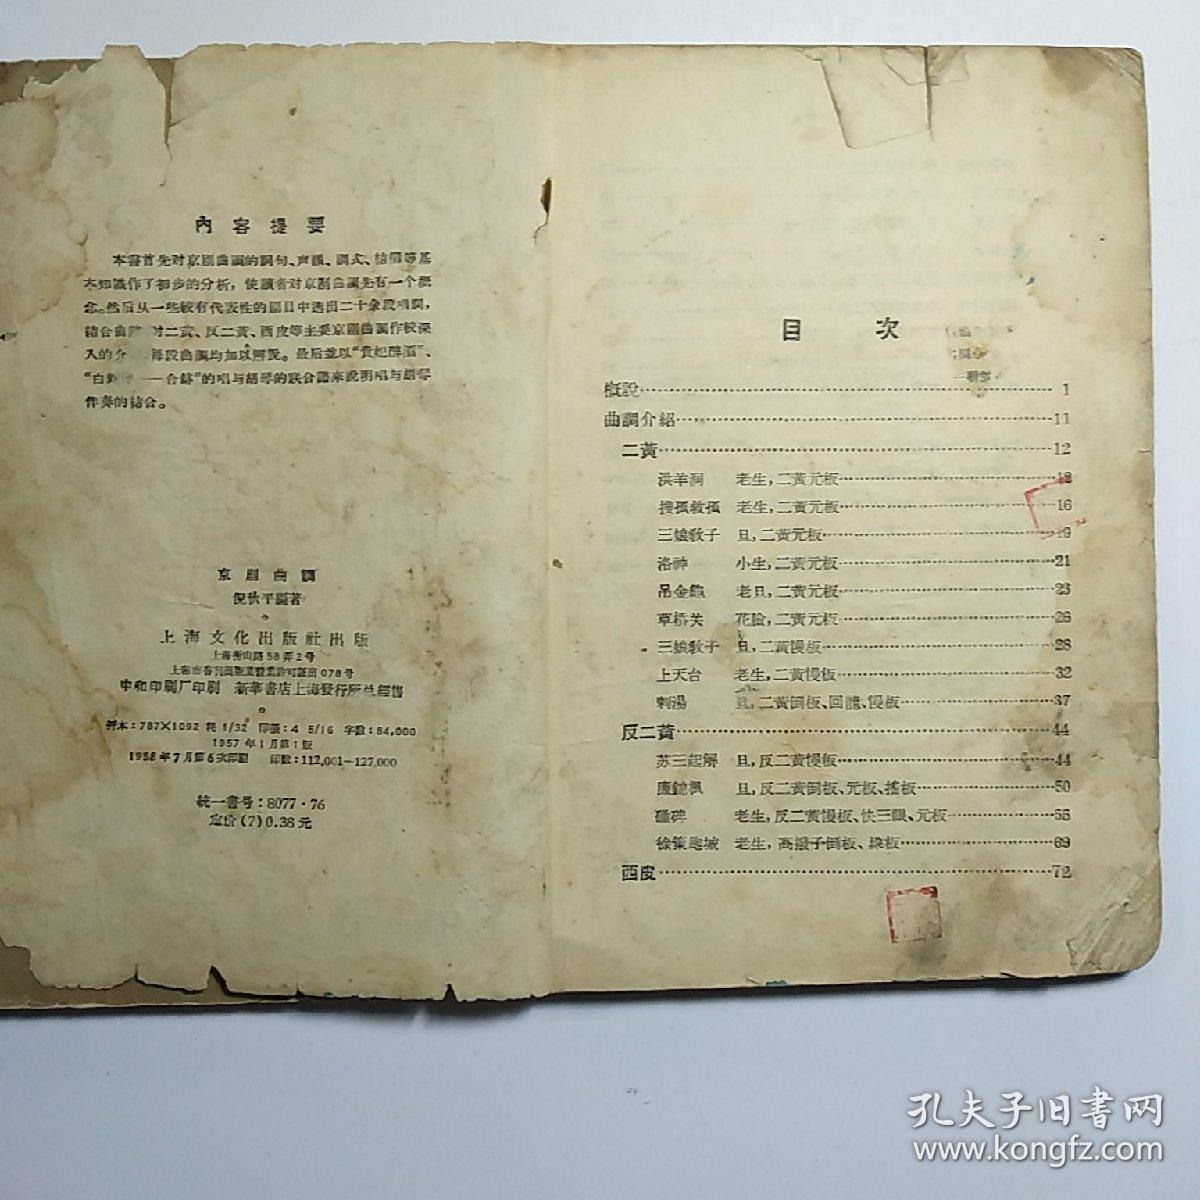 內容提要
本書首先对京剧曲調的詞句、声韻、調式、結構等基
本知識作了初步的分析，使讀者对京剧曲調先有一个概
念。然后从一些較有代表性的剧目中选出二十余段唱詞，
結合曲 对二黃、反二黃、西皮等主要京剧曲調作較深
入的分 每段曲調均加以解說。最后並以“貴妃醉酒”、
“白 ——合鉢”的唱与胡琴的联合譜来說明唱与胡琴
伴奏的結合。
京剧曲調
倪秋平編著
上海文化出版社出版
上海衡山路58弄2号
上海市書刊出版業营業許可証出078号
中和印刷厂印刷 新華書店上海發行所总經售
开本：787×1092 耗 1/32 印張：4 5/16 字数：84,000
1957年1月第1版
1958年7月第6次印刷 印数：112,001—127,000
統一書号：8077·76
定价(7)0.38元
目次
概說 1
曲調介紹 11
二黃 12
洪羊洞 老生，二黃元板 12
搜孤救孤 老生，二黃元板 16
三娘敎子 旦，二黃元板 19
洛神 小生，二黃元板 21
吊金龜 老旦，二黃元板 23
草桥关 花臉，二黃元板 26
三娘敎子 旦，二黃慢板 28
上天台 老生，二黃慢板 32
刺湯 旦，二黃倒板、回龍、慢板 37
反二黃 44
苏三起解 旦，反二黃慢板 44
廉錦楓 旦，反二黃倒板、元板、搖板 50
碰碑 老生，反二黃慢板、快三眼、元板 55
徐策跑城 老生，高撥子倒板、垛板 69
西皮 72
孔夫子旧书网
www.kongfz.com